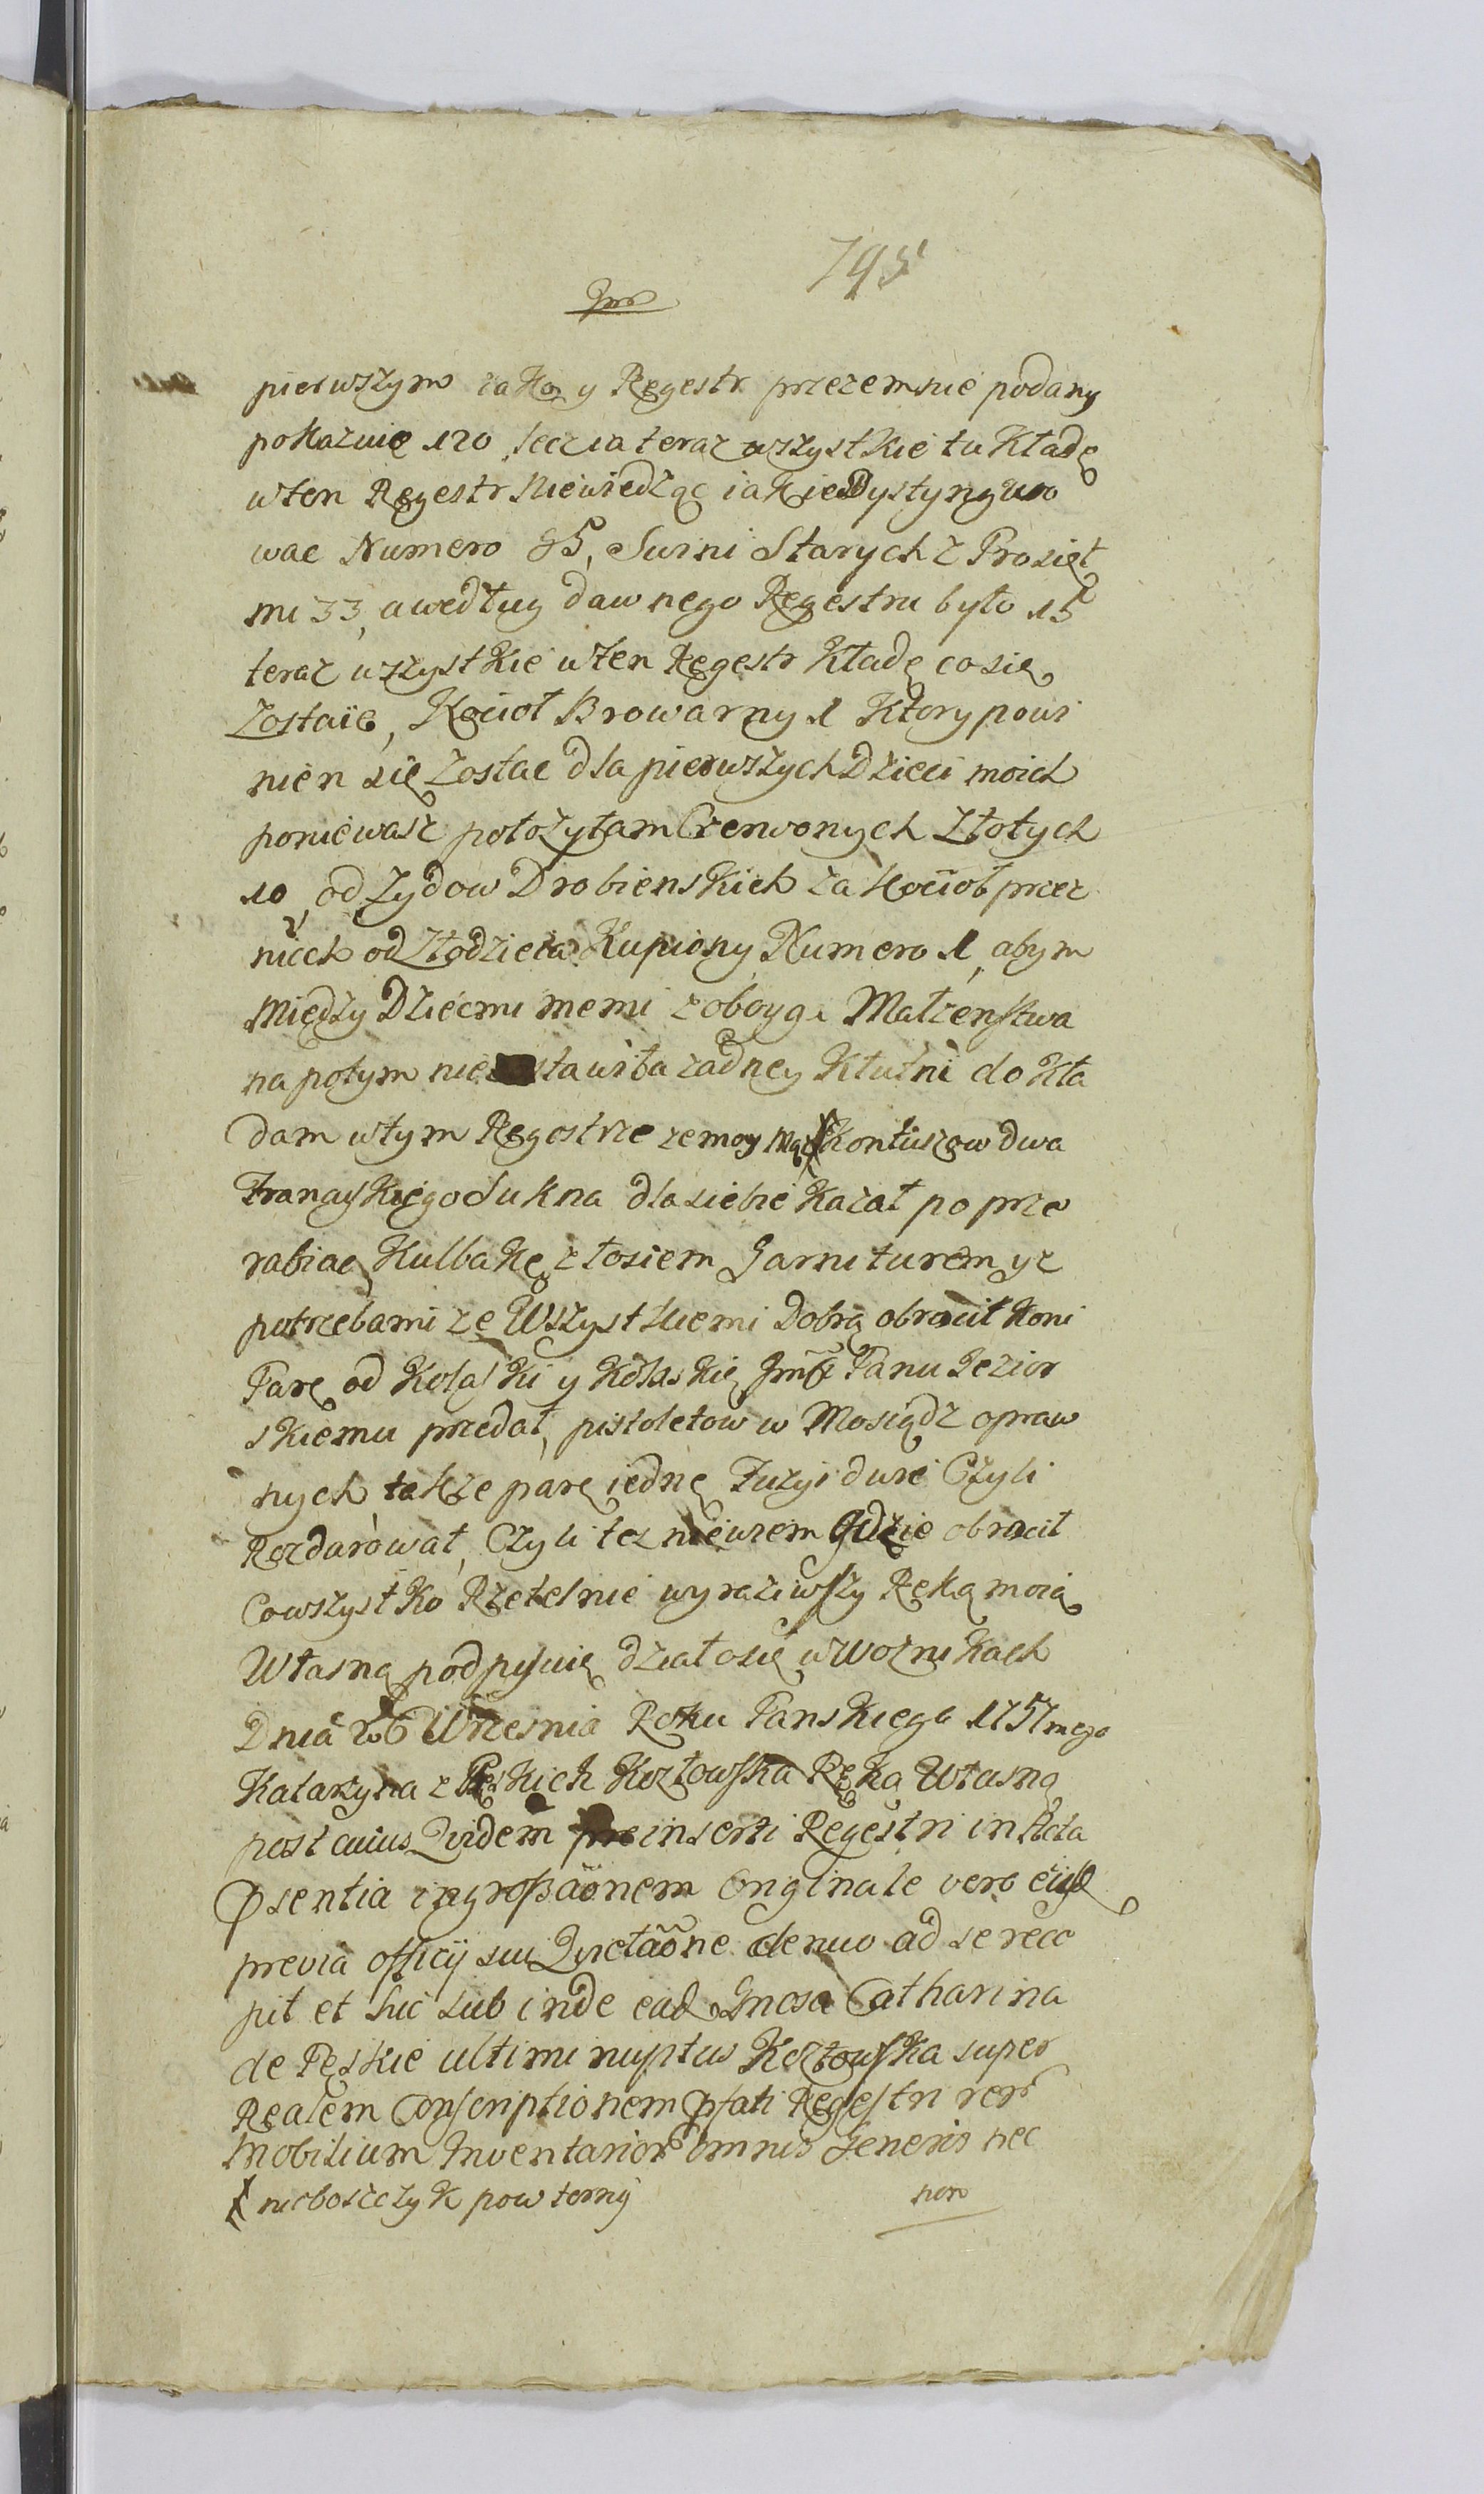 795
pierwszym iako y Regestr przezemnie podany
pokazuię 120, lecz ia teraz wszystkie tu kładę
w ten Regestr niewiedząc iakie Dystyngwo
wac Numero 85, Swini Starych z Prosięt
mi 33, a według dawnego Regestru było 15
teraz wszystkie w ten Regestr kładę co się
zostaie, Kocioł Browarny 1 Ktory powi
nien się zostac dla pierwszych Dzieci moich
poniewasz połozyłam Czerwonych Złotych
10, od Zydow Drobienskich za Kocioł przez
nich od złodzieia Kupiony Numero 1, abym
między Dziećmi memi z oboyga Małzenstwa
na potym nie stawiła zadney Kłutni do kła
dam w tym Regestrze ze moy Mąz Kontuszow dwa
Francyskiego Sukna dla siebie kazał po prze
rabiac, Kulbakę z łosiem Garniturem y z
potrzebami ze Wszystkiemi Dobrą obrocił Koni
Parę od Kolaski y Kolaskię Jmć Panu Jezior
skiemu przedał, pistoletow w Mosiądz opraw
nych także parę iednę Fuzyi dwie Czyli
Rozdarował, Czyli tez niewiem Gdzie obrocił
Co wszystko Rzetelnie wyraziwszy Ręką moią
Własną podpisuię działo się w Woznikach
Dnia 26 Wrzesnia Roku Panskiego 1757mego
Katarzyna z Pęskich Kozłowska Ręką Własną
post cuius Quidem pre inserti Regestri in Acta
Psentia ingrossãonem Originale vero eius
previa officij sui Quietãone denuo ad se rece
pit et huc sub inde ead Gnosa Catharina
de Pęskie ultimi nuptus Kozłowska super
Realem Conscriptionem Pfati Regestri rer
Mobilium Inventarior omnis Generis nec
niebosczyk powtorny
non